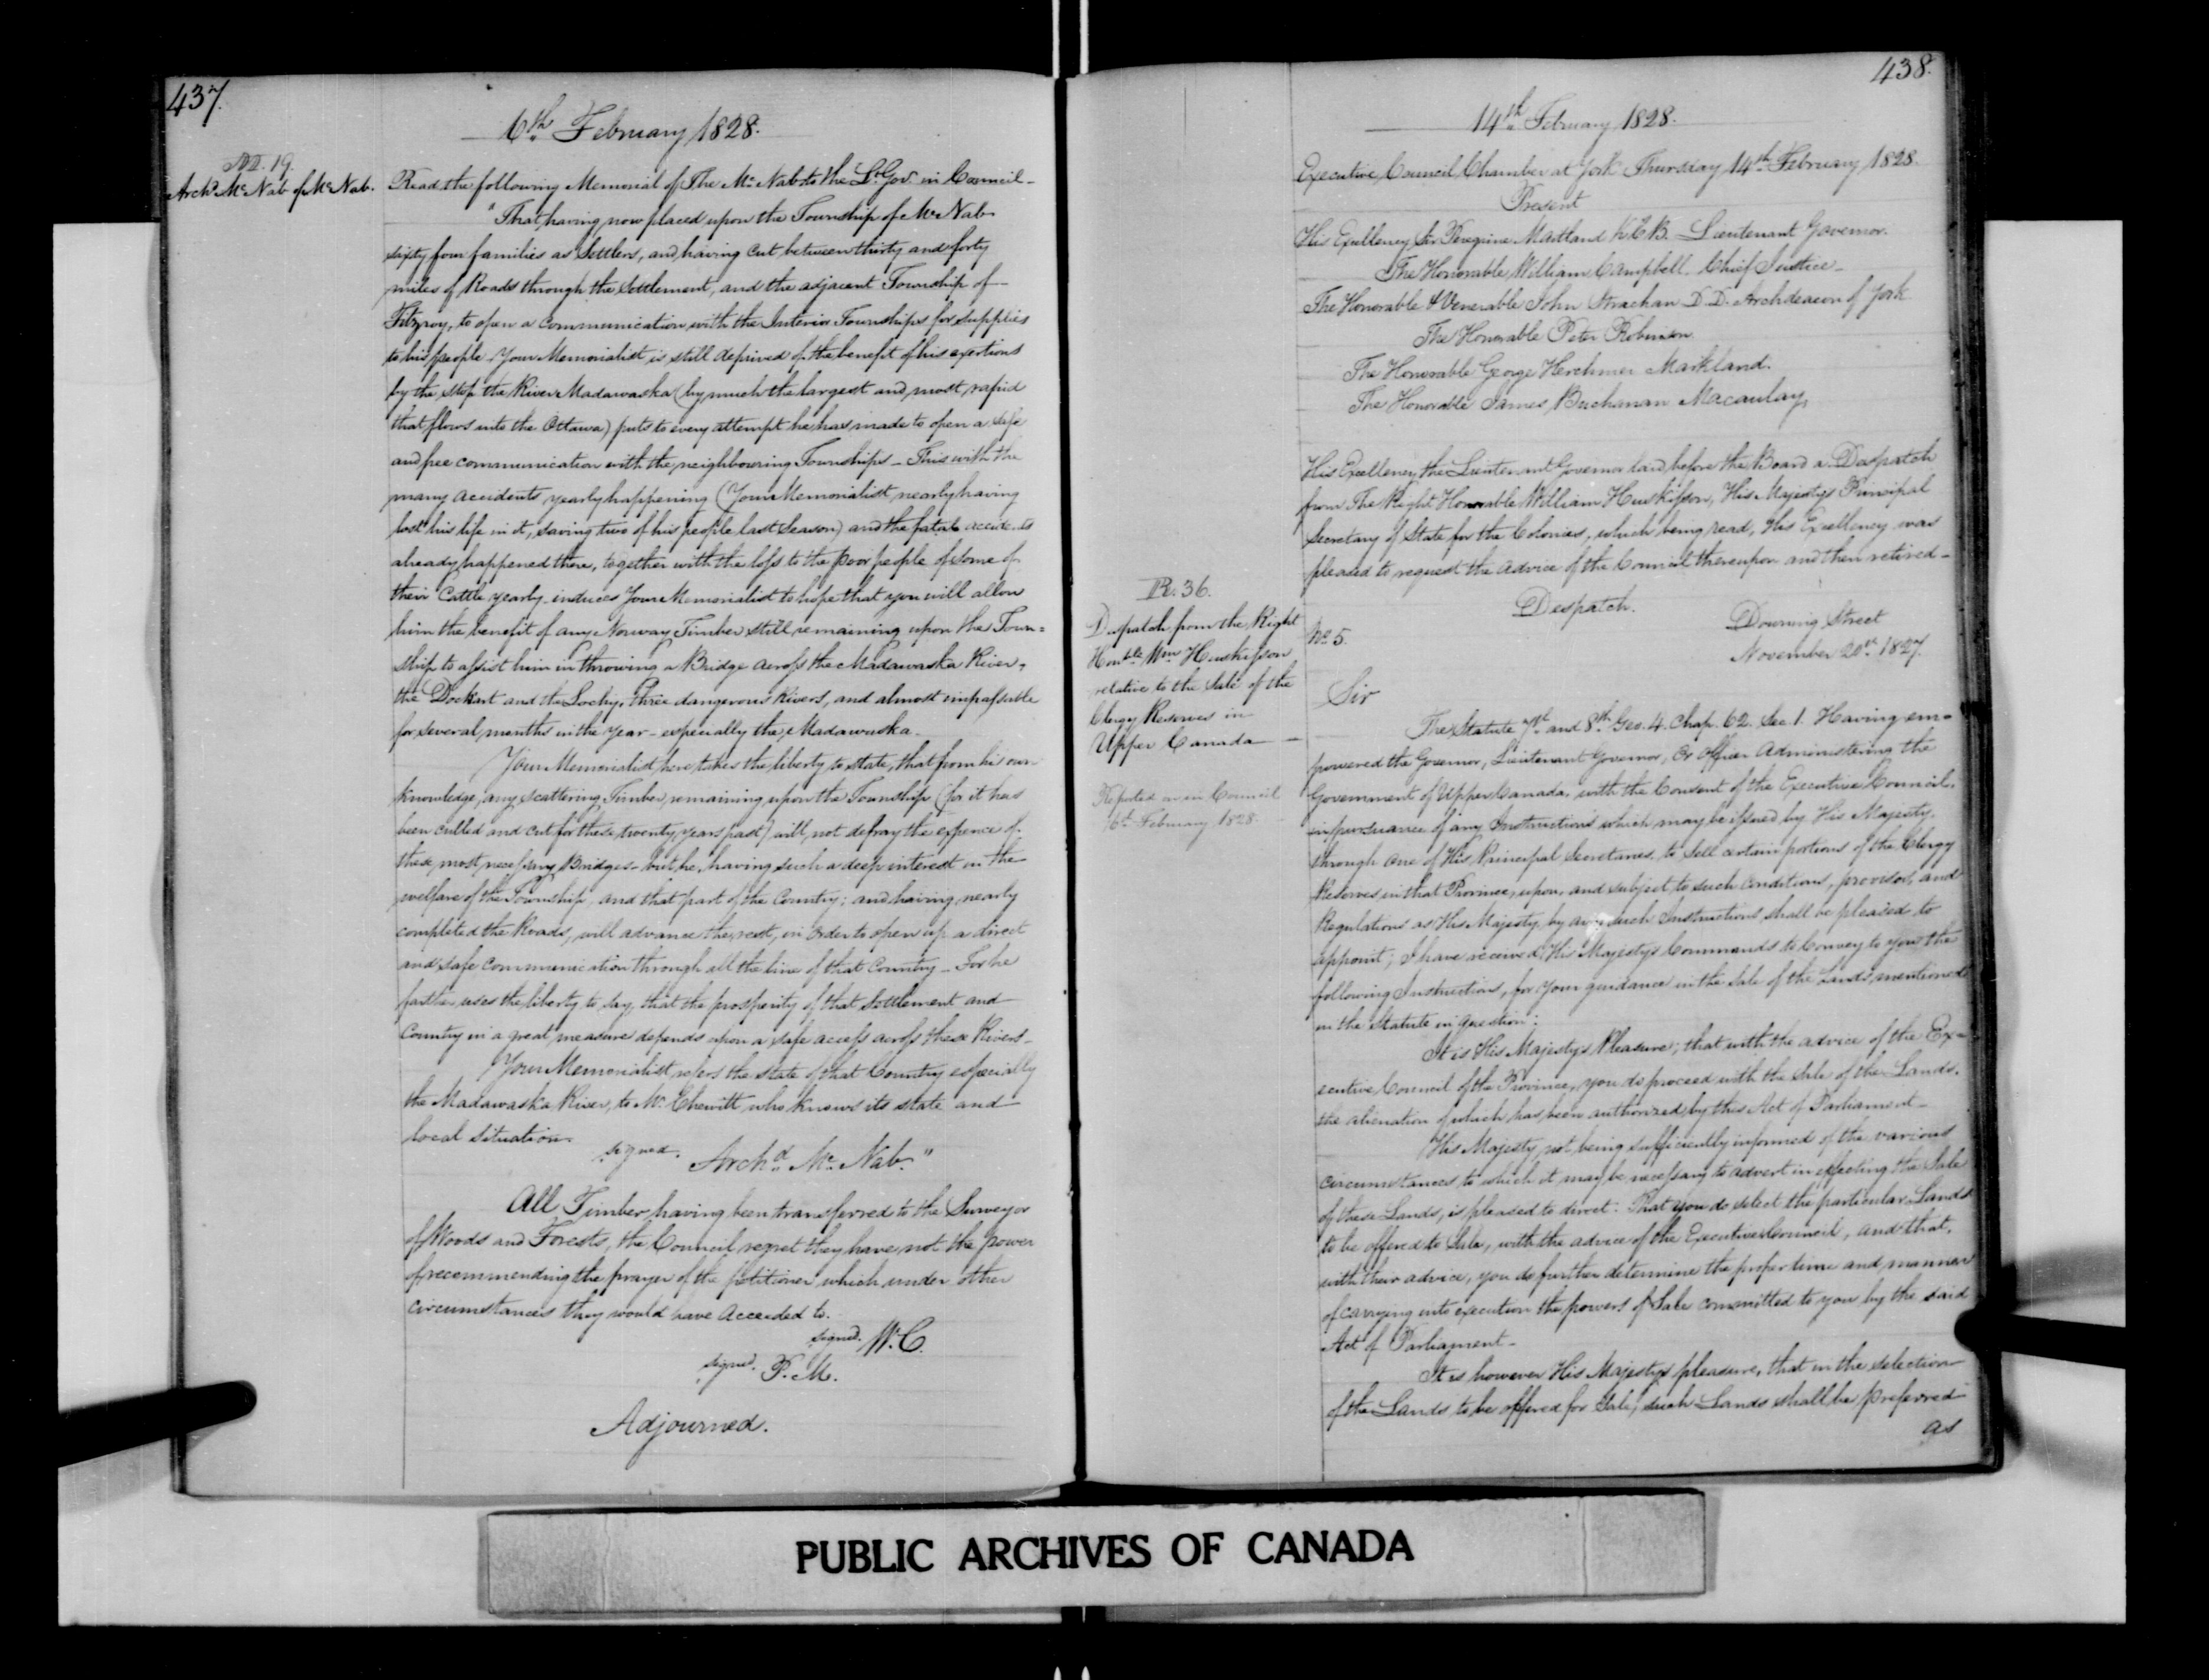 437.
6th February 1828.
M. 19.
Archd McNab of McNab.
Read the following Memorial of The McNab to the Lt Govr in Council -
"That having now placed upon the Township of McNab
sixty four families as Settlers, and having cut between thirty and forty
miles of Roads through the Settlement, and the adjacent Township of
Fitzroy, to open a communication with the Interior Townships for supplies
to his people Your Memorialist is still deprived of the benefit of his exertions
by the stop the River Madawaska (by much the largest and most rapid
that flows into the Ottawa) puts to every attempt he has made to open a safe
and free communication with the neighbouring Townships - This with the
many accidents yearly happening (Your Memorialist nearly having
lost his life in it, saving two of his people last season) and the fatal accidents
already happened there, together with the loss to the poor people of some of
their Cattle yearly induces Your Memorialist to hope that you will allow
him the benefit of any Norway Timber still remaining upon the Town=
ship to assist him in throwing a Bridge across the Madawaska River,
the Dochart and the Lochy, three dangerous Rivers, and almost impassable
for several months in the year - especially the Madawaska.
Your Memorialist here takes the liberty to state, that from his own
knowledge, any scattering Timber remaining upon the Township (for it has
been culled and cut for these twenty years past) will not defray the expence of
these most necessary Bridges - but he, having such a deep interest in the
welfare of the Township, and that part of the Country; and having nearly
completed the Roads, will advance the rest, in order to open up a direct
and safe communication through all the line of that Country - For he
farther uses the liberty to say, that the prosperity of that Settlement and
Country in a great measure depends upon a safe access across these Rivers -
Your Memorialist refers the state of that Country especially
the Madawaska River, to Mr Chewitt, who knows its state and
local situation.
signed. Archd McNab."
All Timber having been transferred to the Surveyor
of Woods and Forests, the Council regret they have not the power
of recommending the prayer of the petitioner which under other
circumstances they would have acceded to.
signed. W. C.
signed. P. M.
Adjourned.
438.
14th February 1828.
Executive Council Chamber at York Thursday 14th February 1828.
Present
His Excellency Sir Peregrine Maitland K.C.B. Lieutenant Governor.
The Honorable William Campbell. Chief Justice -
The Honorable & Venerable John Strachan D.D. Archdeacon of York
The Honorable Peter Robinson
The Honorable George Herchmer Markland.
The Honorable James Buchanan Macaulay,
His Excellency the Lieutenant Governor laid before the Board a Despatch
from The Right Honorable William Huskisson, His Majesty's Principal
Secretary of State for the Colonies, which being read, His Excellency was
pleased to request the advice of the Council thereupon and then retired -
R. 36.
Despatch from the Right
Honble Wm Huskisson
relative to the Sale of the
Clergy Reserves in
Upper Canada -
Reported on in Council
February 1828.
Despatch.
No 5.
Downing Street
November 20th 1827.
Sir
The Statute 7th and 8th Geo. 4. Chap. 62. Sec. 1. Having em=
powered the Governor, Lieutenant Governor, Or Officer Administering the
Government of Upper Canada, with the Consent of the Executive Council,
in pursuance of any Instructions which may be issued by His Majesty,
through one of His Principal Secretaries, to Sell certain portions of the Clergy
Reserves in that Province, upon, and subject to such Conditions, provisos, and
Regulations as His Majesty, by any such Instructions, shall be pleased to
appoint; I have received His Majesty's Commands to Convey to you the
following Instructions, for your guidance in the Sale of the Lands mentioned
in the Statute in question:
It is His Majesty's Pleasure; that with the advice of the Ex=
ecutive Council of the Province, you do proceed with the Sale of the Lands,
the alienation of which has been authorized by this Act of Parliament -
His Majesty, not being sufficiently informed of the various
circumstances to which it may be necessary to advert in effecting the Sale
of these Lands, is pleased to direct: That you do select the particular Lands
to be offered to Sale, with the advice of the Executive Council, and that,
with their advice, you do further determine the proper time and manner
of carrying into execution the powers of Sale committed to you by the said
Act of Parliament -
It is however His Majesty's pleasure, that in the selection
of the Lands to be offered for Sale, such Lands shall be preferred
as
PUBLIC ARCHIVES OF CANADA